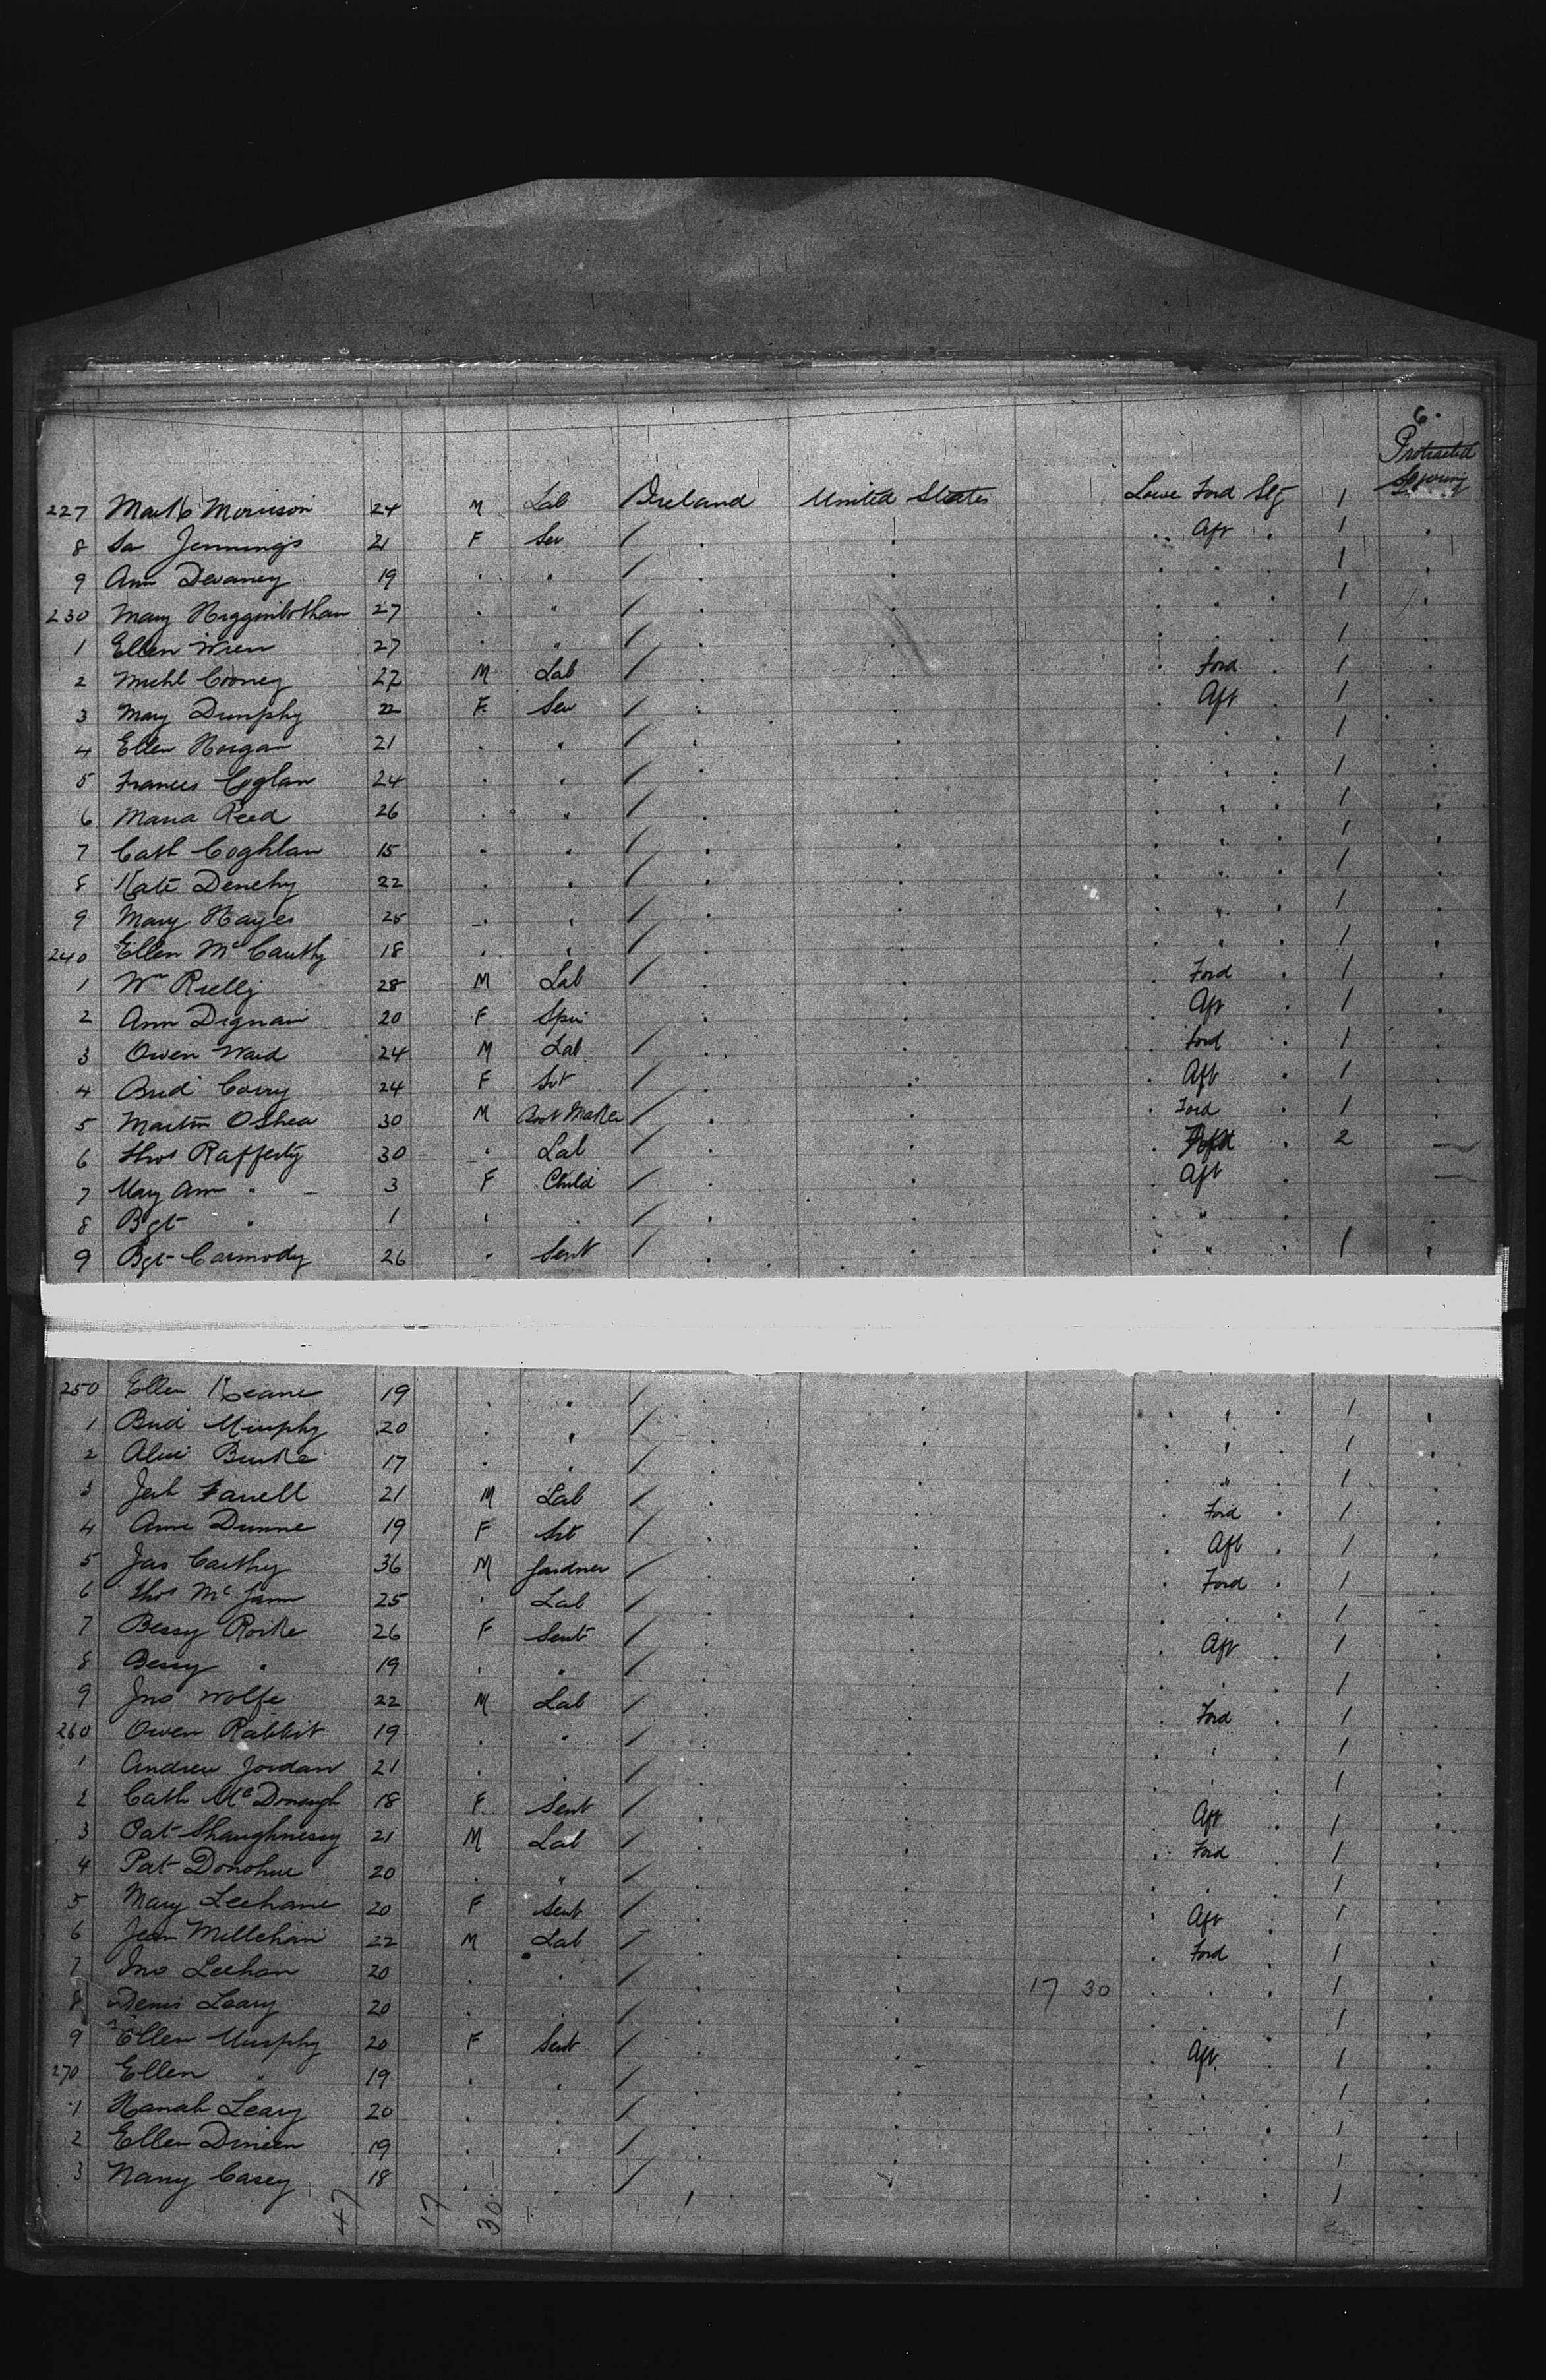 6.
Protracted
Sojourn
227 Mark Morrison 24 M Lab Ireland United States Lowr Ford Stg 1
8 Sa Jennings 21 F Ser / . . . Aft . 1 .
9 Ann Devaney 19 . " / . . . . . 1 .
230 Mary Higginbotham 27 . " / . . . . . 1 .
1 Ellen Wren 27 . " / . . . . . 1 .
2 Michl Cooney 27 M Lab / . . . Ford . 1 .
3 Mary Dunphy 22 F Ser / . . . Aft . 1 .
4 Ellen Horgan 21 . " / . . . . . 1 .
5 Frances Coglan 24 . " / . . . . . 1 .
6 Maria Reed 26 . " / . . . . . 1 .
7 Cath Coghlan 15 . " / . . . . . 1 .
8 Kate Denehy 22 . " / . . . . . 1 .
9 Mary Hayes 25 . " / . . . . . 1 .
240 Ellen McCarthy 18 . " / . . . . . 1 .
1 Wm Rielly 28 M Lab / . . . Ford . 1 .
2 Ann Dignan 20 F Spin . . . Aft . 1 .
3 Owen Ward 24 M Lab / . . . Ford . 1 .
4 Brid Corry 24 F Svt / . . . Aft . 1 .
5 Martin OShea 30 M Boot Maker / . . . Ford . 1 .
6 Thos Rafferty 30 . Lab / . . . . 2 —
7 Mary Ann " 3 F Child / . . . Aft —
8 Bgt " 1 . . / . . . " .
9 Bgt Carmody 26 " Servt / . . . " . 1 .
250 Ellen Keane 19 . " / . . . . . 1 .
1 Brid Murphy 20 . " / . . . . . 1 .
2 Alice Burke 17 . " / . . . " . 1 .
3 Farrell 21 M Lab / . . . Ford . 1 .
4 Anne Dunne 19 F Svt / . . . Aft . 1 .
5 Jas Carthy 36 M Gardner / . . . Ford . 1 .
6 Thos McGann 25 . Lab / . . . . . 1 .
7 Bessy Rorke 26 F Servt / . . . Aft . 1 .
8 Bessy " 19 . " / . . . . . 1 .
9 Jno Wolfe 22 M Lab / . . . Ford . 1 .
260 Owen Rabbit 19 . " / . . . . . 1 .
1 Andrew Jordan 21 . . / . . . . . 1 .
2 Cath McDonough 18 F Servt / . . . Aft . 1 .
3 Pat Shaughnessy 21 M Lab / . . . Ford . 1 .
4 Pat Donohue 20 . " / . . . . . 1 .
5 Mary Leehane 20 F Servt / . . . Aft . 1 .
6 22 M Lab / . . . Ford . 1 .
7 Jno Leehan 20 . . / . . 17 30 . . . 1 .
8 Denis Leary 20 . . / . . . . . 1 .
9 Ellen Murphy 20 F Servt / . . . Aft . 1 .
270 Ellen " 19 . . / . . . . . 1 .
1 Hanah Leary 20 . . / . . . . . 1 .
2 Ellen Dineen 19 . . / . . . . . 1 .
3 Nany Casey 18 . . / . . . . . 1 .
47 17 30